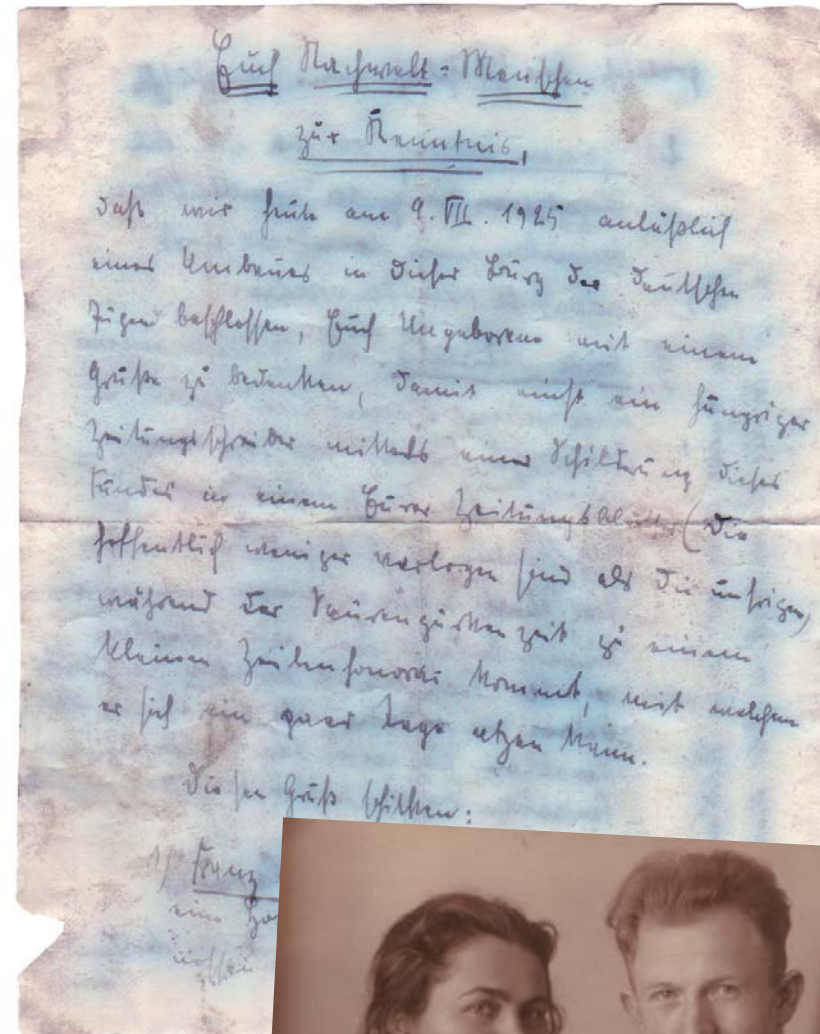 Euch Nachwelt-Menschen
zur Kenntnis,
daß wir heute am 9. VII. 1925 anläßlich
eines Umbaues in dieser Burg der deutschen
Jugend beschlossen, Euch Ungeborene mit einem
Gruße zu bedenken, damit nicht ein hungriger
Zeitungsschreiber mittels einer Schilderung dieses
Fundes in einem Eurer Zeitungsblätter (die
hoffentlich weniger verlogen sind als die unsrigen)
während der Saurengurkenzeit zu einem
kleinen Zeilenhonorar kommt, mit welchem
er sich ein paar Tage atzen kann.
Diesen Gruß schicken:
Franz